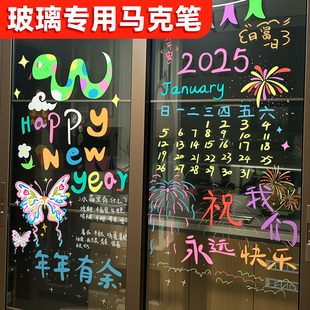 玻璃专用马克笔
平安
2025
January
日 一 二 三 四 五 六
1 2 3 4
5 6 7 8 9 10 11
12 13 14 15 16 17 18
19 20 21 22 23 24 25
26 27 28 29 30 31
Happy
New
year
年年有余
祝我们
永远快乐